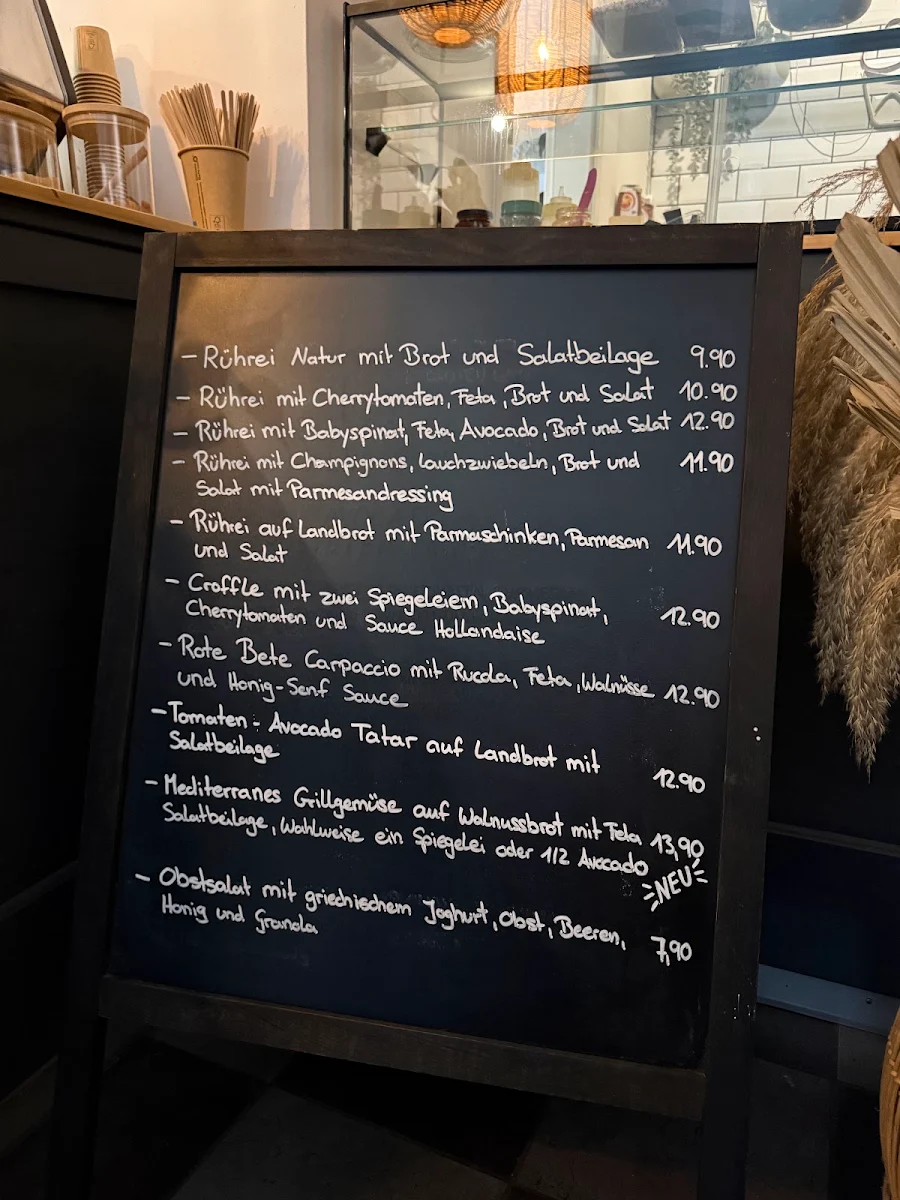 - Rührei Natur mit Brot und Salatbeilage 9.90
- Rührei mit Cherrytomaten, Feta, Brot und Salat 10.90
- Rührei mit Babyspinat, Feta, Avocado, Brot und Salat 12.90
- Rührei mit Champignons, Lauchzwiebeln, Brot und 11.90
Salat mit Parmesandressing
- Rührei auf Landbrot mit Parmaschinken, Parmesan 11.90
und Salat
- Croffle mit zwei Spiegeleiern, Babyspinat,
Cherrytomaten und Sauce Hollandaise 12.90
- Rote Bete Carpaccio mit Rucola, Feta, Walnüsse 12.90
und Honig-Senf Sauce
- Tomaten - Avocado Tatar auf Landbrot mit
Salatbeilage 12.90
- Mediterranes Grillgemüse auf Walnussbrot mit Feta 13,90
Salatbeilage, Wahlweise ein Spiegelei oder 1/2 Avocado
NEU
- Obstsalat mit griechischem Joghurt, Obst, Beeren, 7,90
Honig und Granola